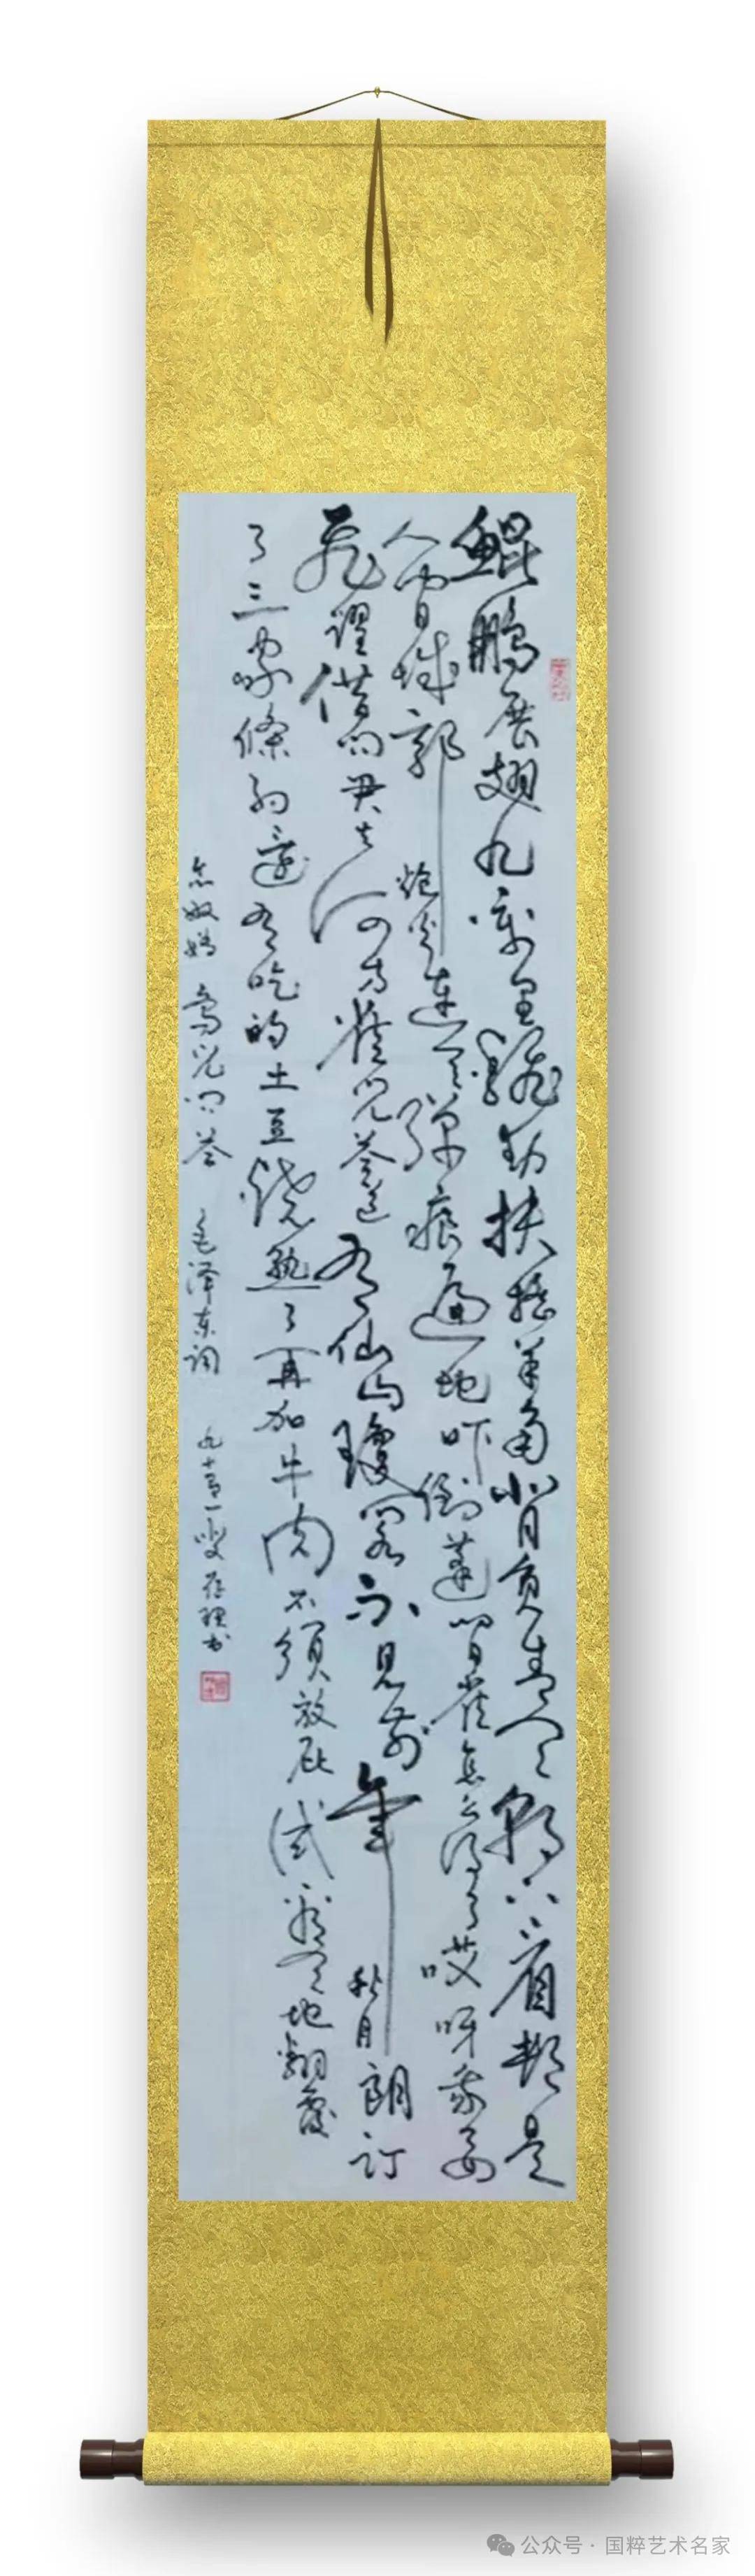 鯤鵬展翅九万里翻动扶摇羊角背負青天朝下看都是
人间城郭炮火连天弹痕遍地吓倒蓬间雀怎么得了哎呀我要
飛躍借问君去何方雀儿答道有仙山瓊阁不見前年秋月朗订
了三家條约还有吃的土豆烧熟了再加牛肉不须放屁试看天地翻覆
念奴娇 鸟儿问答 毛泽东词 九十有一叟存理书
公众号 · 国粹艺术名家